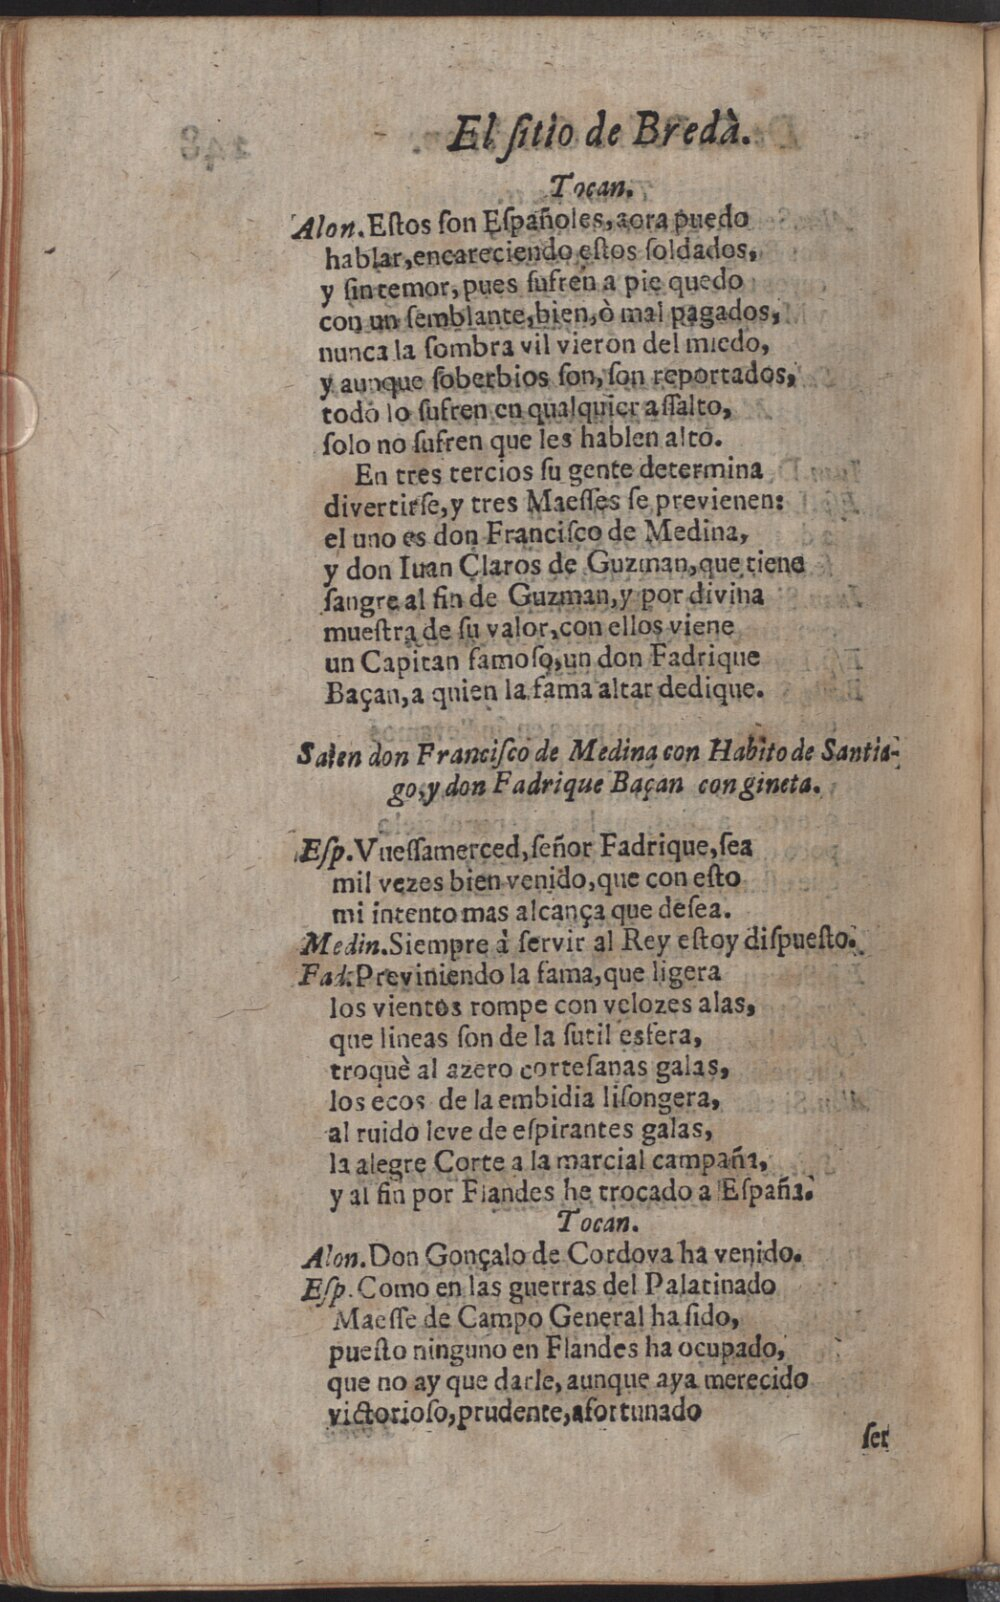 El ſitio de Bredà.
Tocan.
Alon. Eſtos ſon Eſpañoles, aora puedo
hablar, encareciendo eſtos ſoldados,
y ſin temor, pues ſufren a pie quedo
con un ſemblante, bien, ò mal pagados,
nunca la ſombra vil vieron del miedo,
y aunque ſoberbios ſon, ſon reportados,
todo lo ſufren en qualquier aſſalto,
ſolo no ſufren que les hablen alto.
En tres tercios ſu gente determina
divertirſe, y tres Maeſſes ſe previenen:
el uno es don Franciſco de Medina,
y don Iuan Claros de Guzman, que tiene
ſangre al fin de Guzman, y por divina
mueſtra de ſu valor, con ellos viene
un Capitan famoſo, un don Fadrique
Baçan, a quien la fama altar dedique.
Salen don Franciſco de Medina con Habito de Santia-
go, y don Fadrique Baçan con gineta.
Eſp. Vueſſamerced, ſeñor Fadrique, ſea
mil vezes bien venido, que con eſto
mi intento mas alcança que deſea.
Medin. Siempre à ſervir al Rey eſtoy diſpueſto.
Fad. Previniendo la fama, que ligera
los vientos rompe con velozes alas,
que lineas ſon de la ſutil esfera,
troquè al azero corteſanas galas,
los ecos de la embidia liſongera,
al ruido leve de eſpirantes galas,
la alegre Corte a la marcial campaña,
y al fin por Flandes he trocado a Eſpaña.
Tocan.
Alon. Don Gonçalo de Cordova ha venido.
Eſp. Como en las guerras del Palatinado
Maeſſe de Campo General ha ſido,
pueſto ninguno en Flandes ha ocupado,
que no ay que darle, aunque aya merecido
victorioſo, prudente, afortunado
ſer